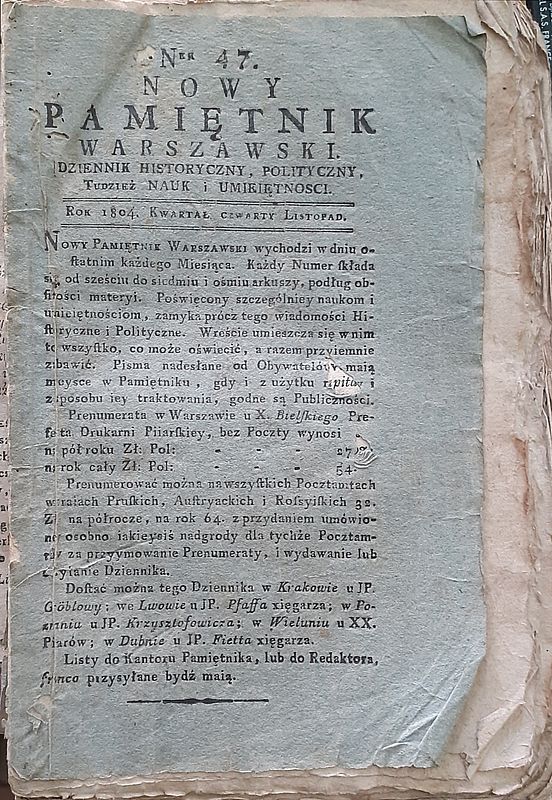 Ner 47.
NOWY
PAMIĘTNIK
WARSZAWSKI.
DZIENNIK HISTORYCZNY, POLITYCZNY,
Tudzież NAUK i UMIEIĘTNOSCI.
Rok 1804. Kwartał czwarty Listopad.
Nowy Pamiętnik Warszawski wychodzi w dniu o-
ſtatnim każdego Mieſiąca. Każdy Numer ſkłada
się od sześciu do siedmiu i ośmiu arkuszy, podług ob-
fitości materyi. Poświęcony szczególniey naukom i
umieiętnościom, zamyka prócz tego wiadomości Hi-
ſtoryczne i Polityczne. Wreście umieszcza się w nim
to wszyſtko, co może oświecić, a razem przyiemnie
zabawić. Pisma nadesłane od Obywatelów maią
mieysce w Pamiętniku, gdy i z użytku i
zsposobu iey traktowania, godne są Publiczności.
Prenumerata w Warszawie u X. Bielſkiego Pre-
fekta Drukarni Piiarſkiey, bez Poczty wynosi
na pół roku Zł: Pol: - - - 27
na rok cały Zł: Pol: - - - 54
Prenumerować można na wszyſtkich Pocztamtach
w kraiach Pruſkich, Auſtryackich i Roſsyiſkich 32.
Zł na półrocze, na rok 64. z przydaniem umówio-
ney osobno iakieyśiś nadgrody dla tychże Pocztam-
tów za przyymowanie Prenumeraty, i wydawanie lub
Dziennika.
Doſtać można tego Dziennika w Krakowie u JP.
Gröblowy; we Lwowie u JP. Pfaffa xięgarza; w Po-
znaniu u JP. Krzysztofowicza; w Wieluniu u XX.
Piarów; w Dubnie u JP. Fietta xięgarza.
Listy do Kantoru Pamiętnika, lub do Redaktora,
franco przysyłane bydź maią.